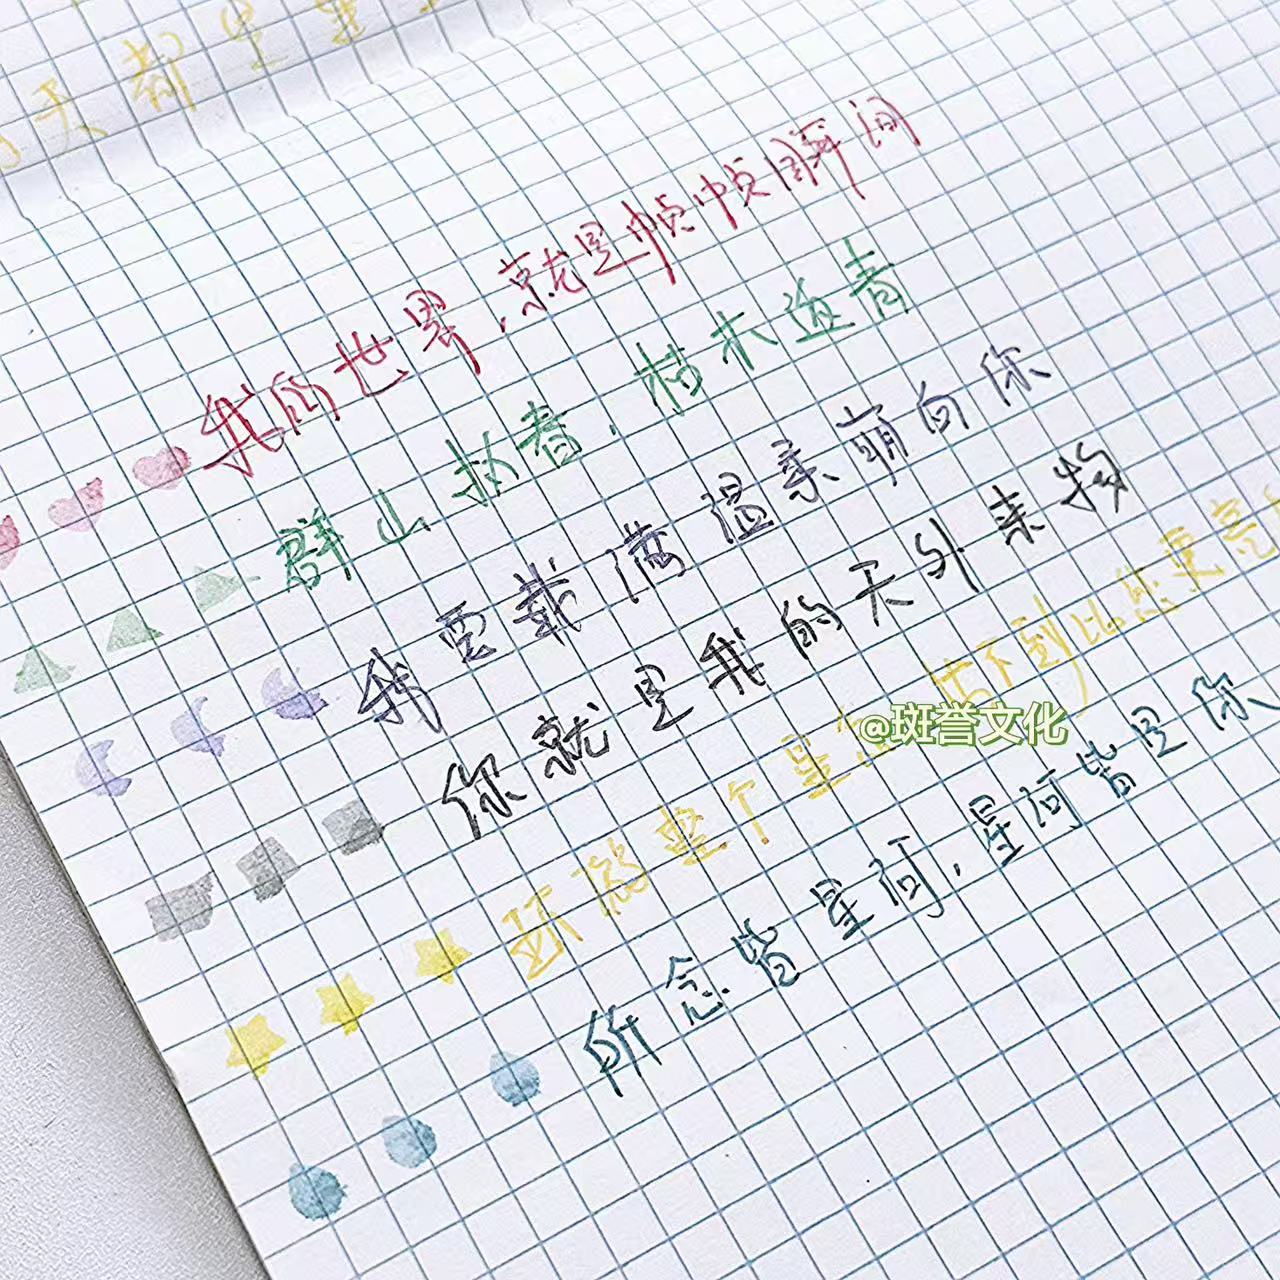 天都是
我的世界,就是帧帧瞬间
群山,木
我要载满温柔萌向你
你就是我的天外来物
@斑誉文化
环整个星不到比您更亮
所念皆星河,星河皆是你